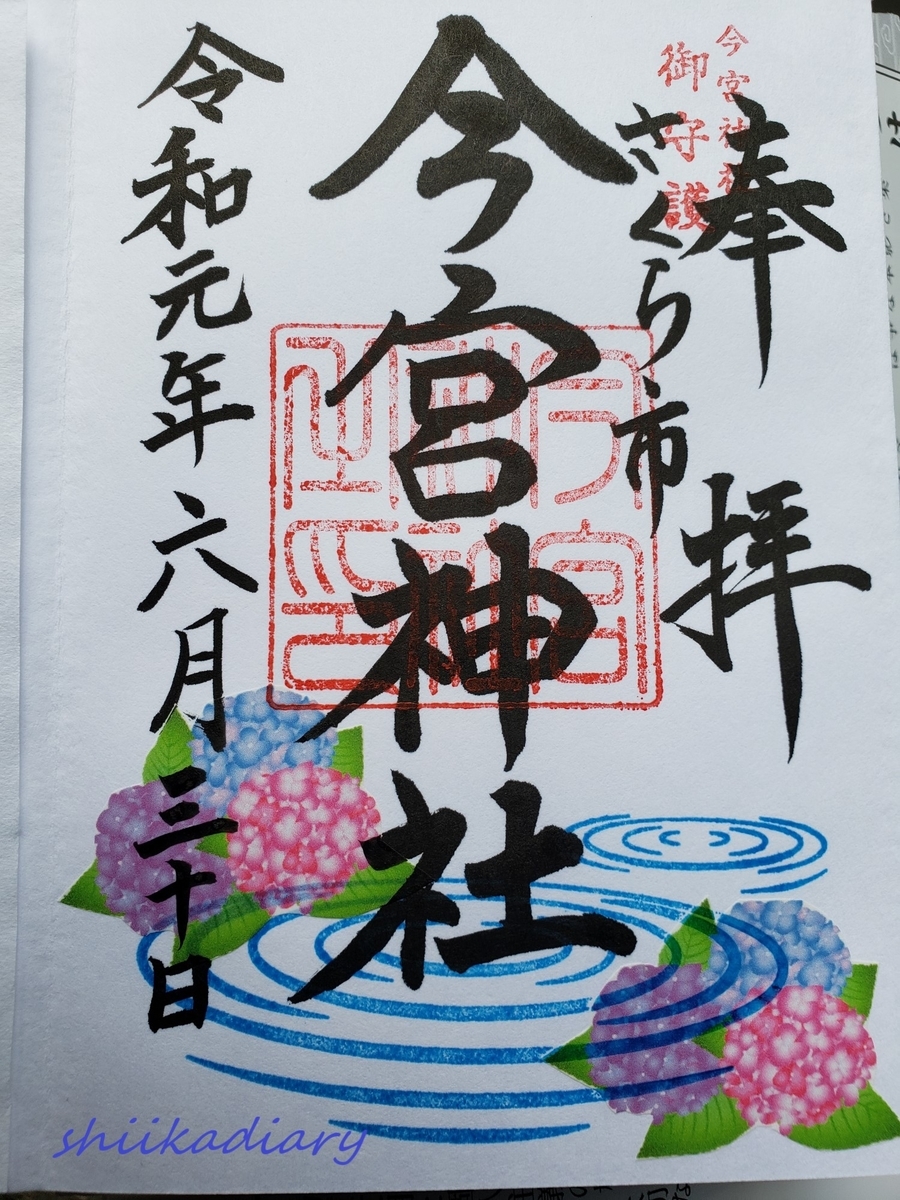 奉拝
今宮社社
御守護
さくら市
今宮神社
令和元年六月三十日
shiikadiary